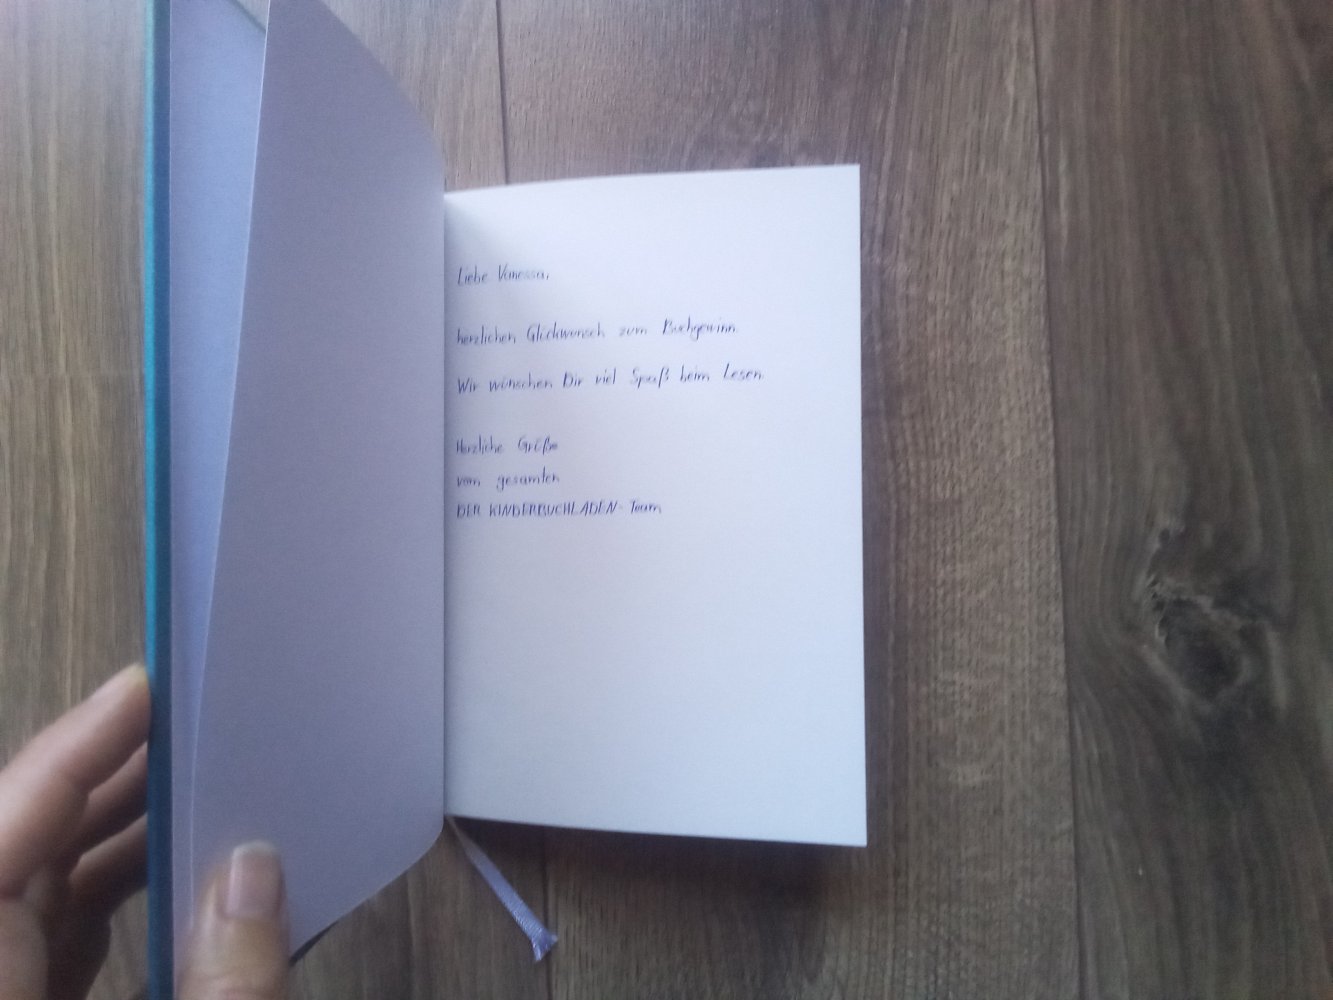 Liebe Vanessa,
herzlichen Glückwunsch zum Buchgewinn.
Wir wünschen Dir viel Spaß beim Lesen.
Herzliche Grüße
vom gesamten
DER KINDERBUCHLADEN-Team